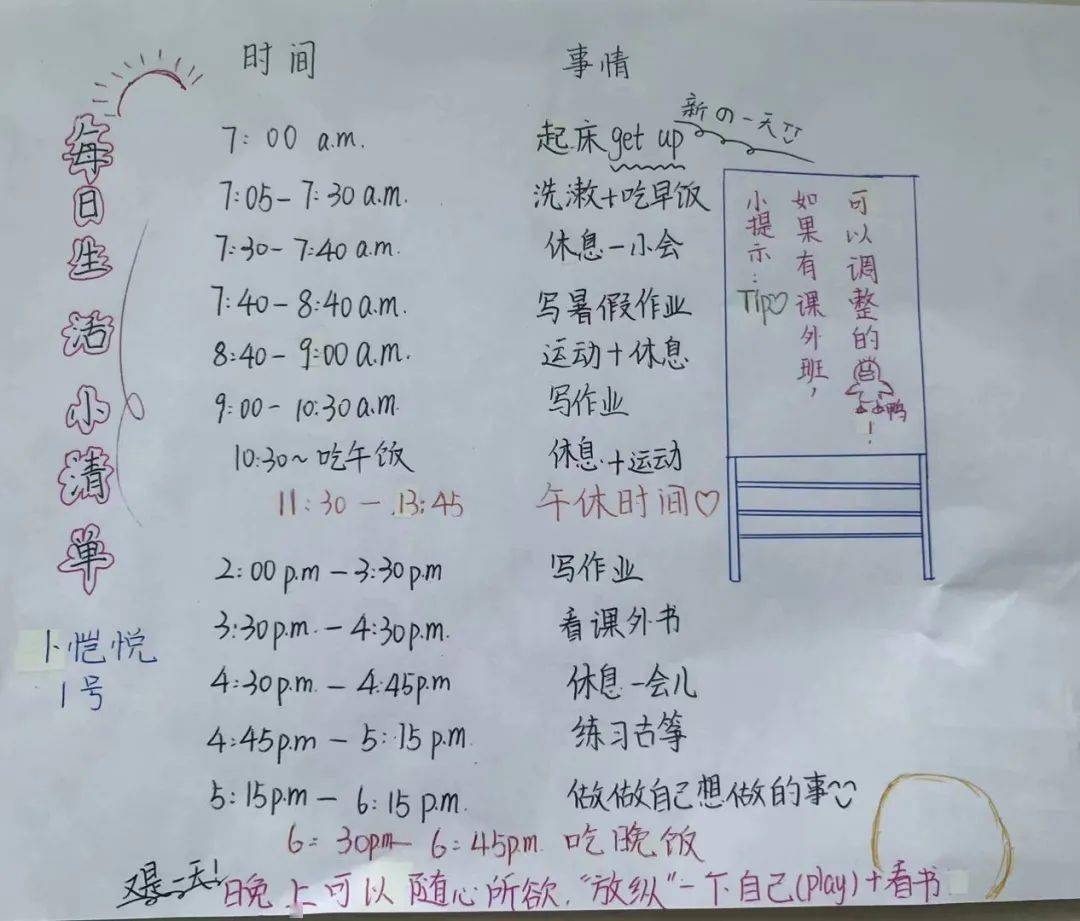 每日生活小清单
卜恺悦
1号
时间 事情
7:00 a.m. 起床get up
新の一天
7:05-7:30 a.m. 洗漱+吃早饭
7:30-7:40 a.m. 休息一小会
7:40-8:40 a.m. 写暑假作业
8:40-9:00 a.m. 运动+休息
9:00-10:30 a.m. 写作业
10:30~吃午饭 休息+运动
11:30-13:45 午休时间♡
2:00 p.m-3:30 p.m 写作业
3:30 p.m.-4:30 p.m. 看课外书
4:30 p.m.-4:45 p.m 休息一会儿
4:45 p.m-5:15 p.m. 练习古筝
5:15 p.m-6:15 p.m. 做做自己想做的事
6:30pm-6:45pm. 吃晚饭
又是一天!
晚上可以随心所欲,“放纵”一下自己(play)+看书
小提示:Tip♡
如果有课外班,
可以调整的鸭!